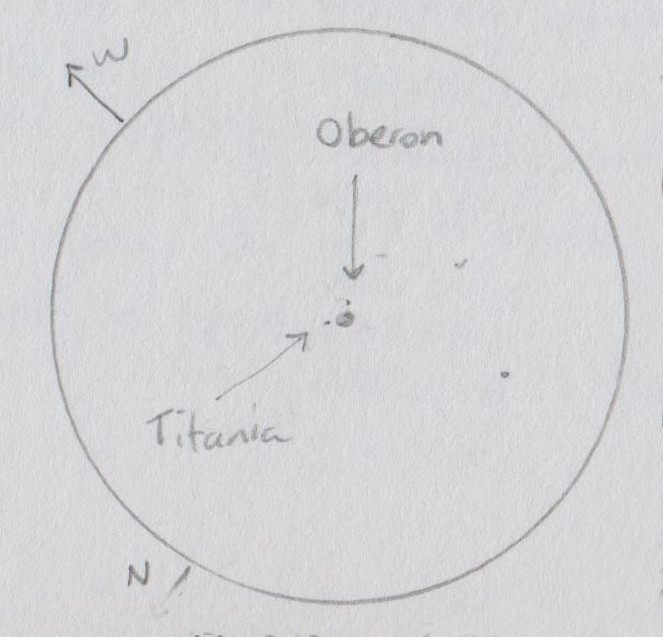 W
Oberon
Titania
N